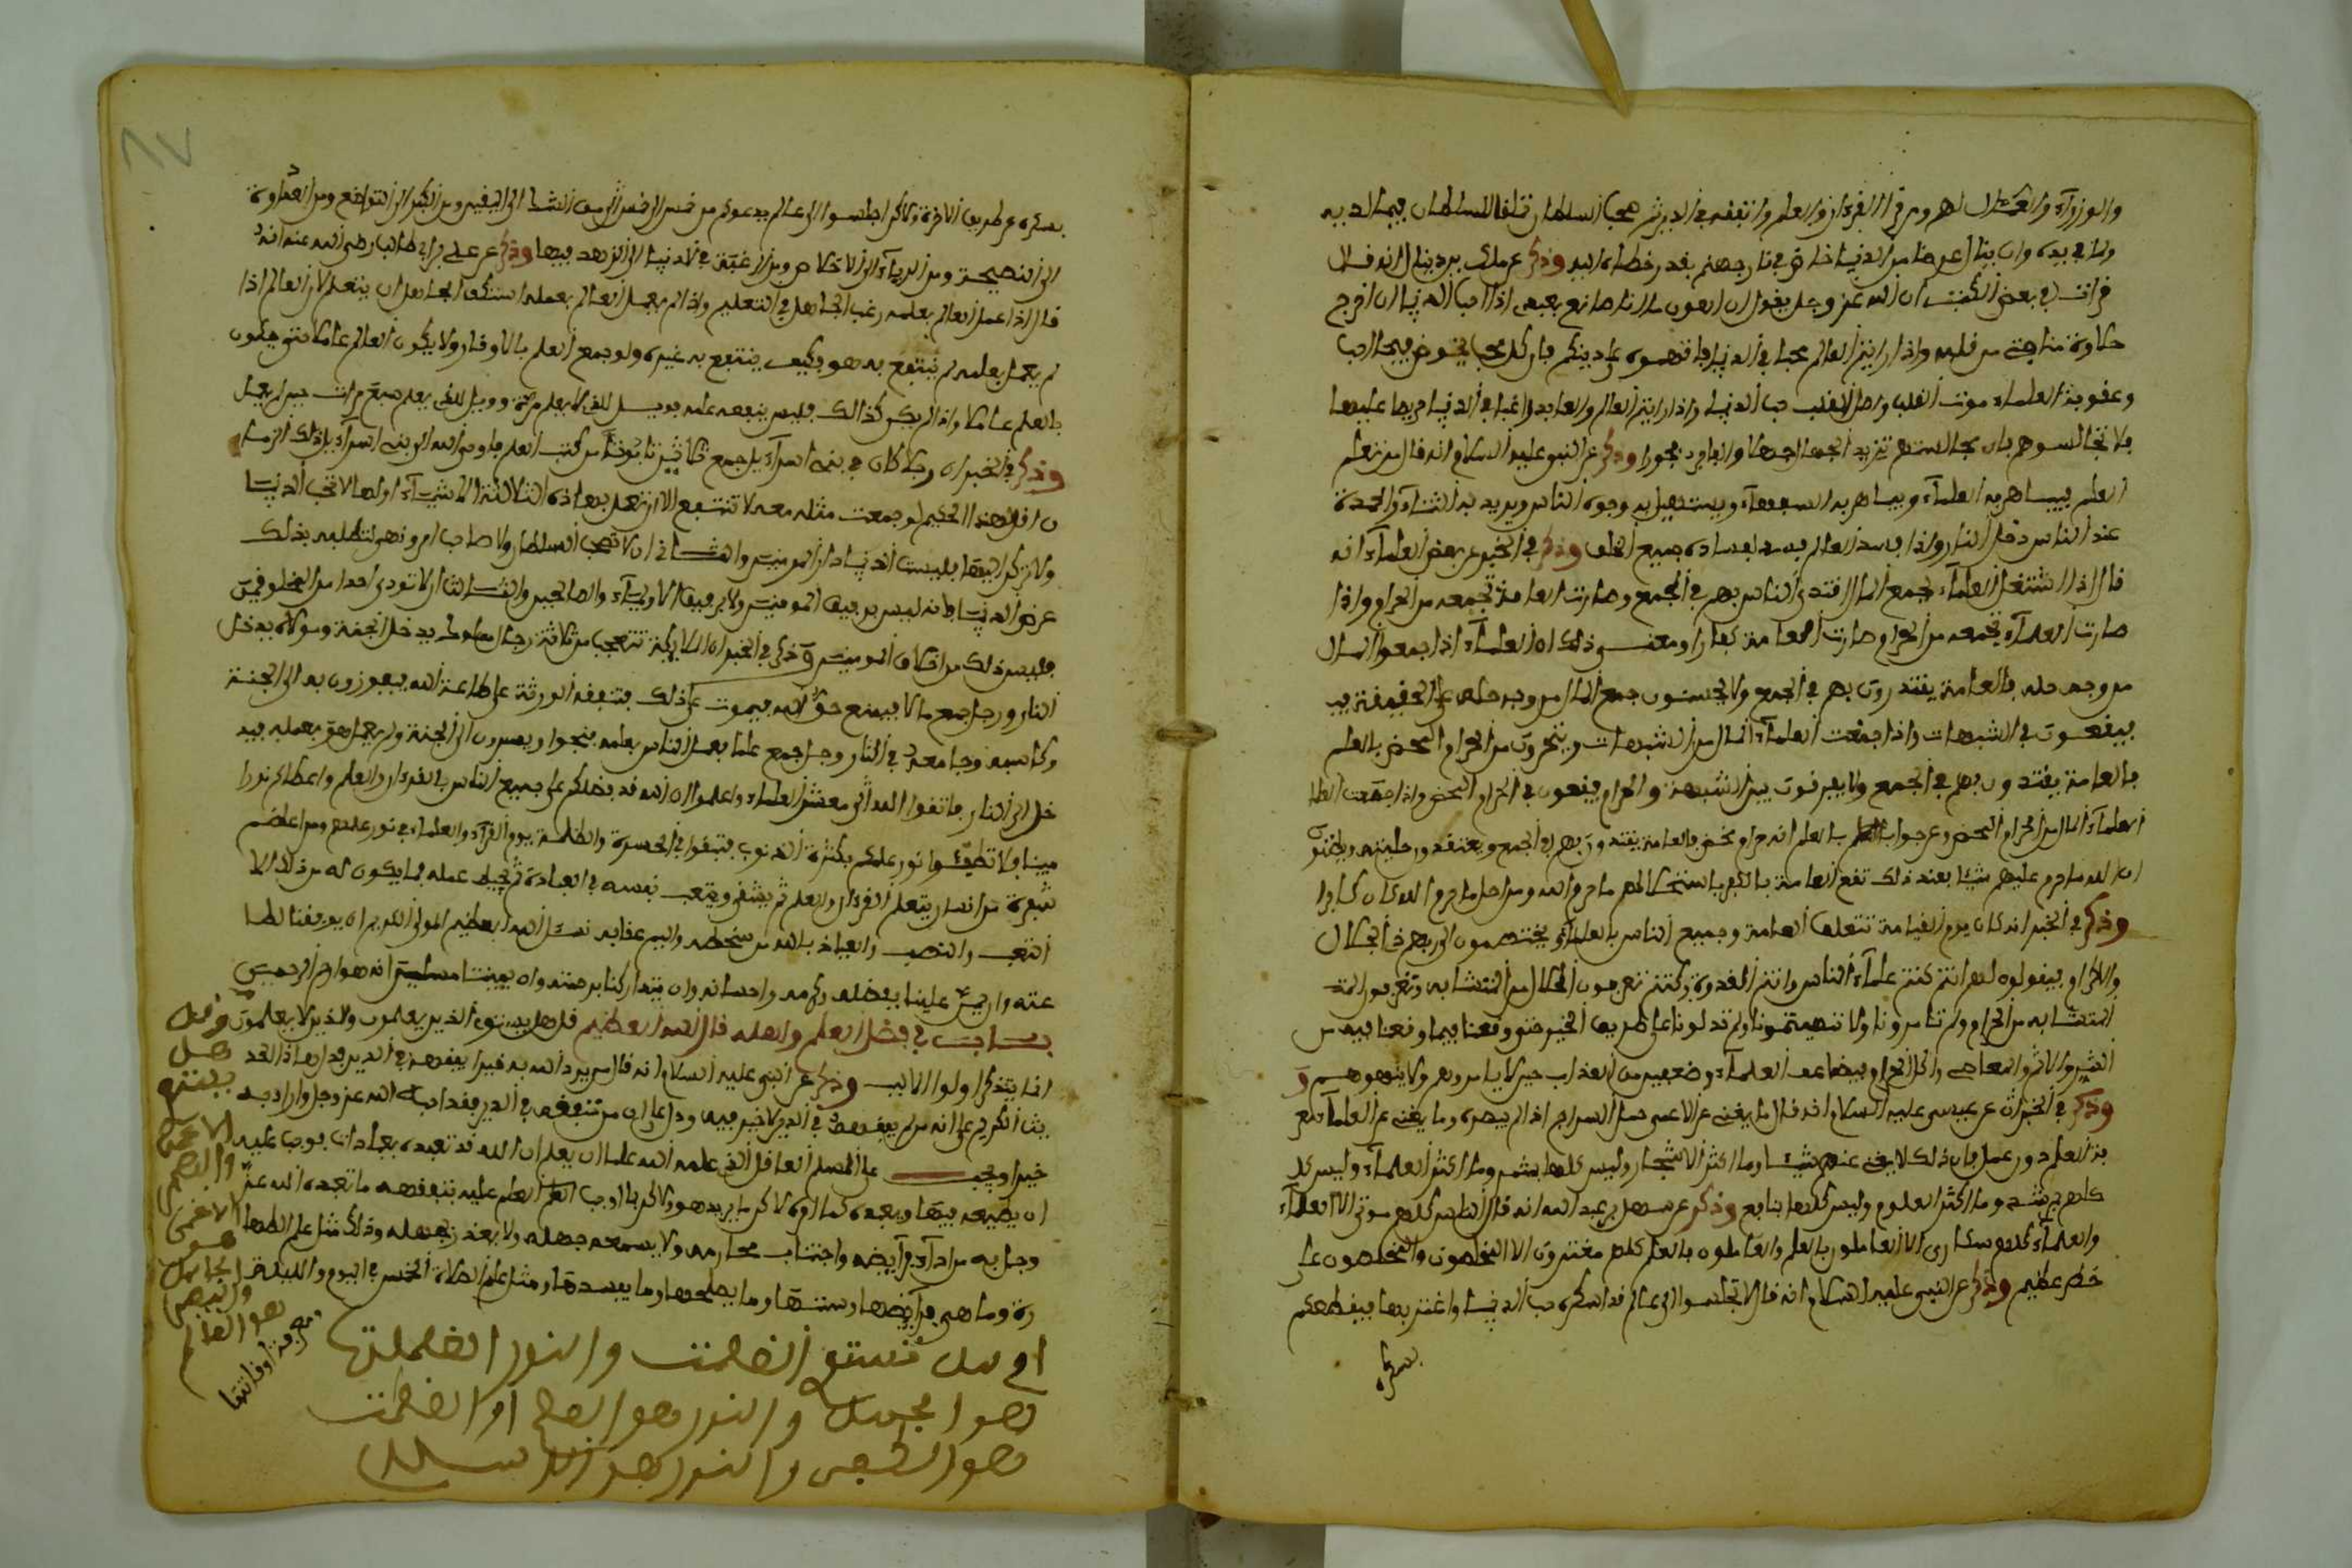 والوزرآء والعمال لهم ومن قرا القرءان والعلم وانتفقه في الدين ثم صحب السلطان تملقا للسلطان فيما لديه
وما في يديه وان ينال عرضا من الدنيا خاض في نار جهنم بقدر خطاه اليه وذكر عن ملك بن دينار انه قال
قرات في بعض الكتب ان الله عز وجل يقول ان اهون ما انا صانع بعبدي اذا احب الدنيا ان اخرج
حلاوة مناجتي من قلبه واذا رايتم العالم محبا في الدنيا فاتهموه على دينكم فان كل محب يخوض فيما احب
وعقوبة العلماء موت القلب واصل القلب حب الدنيا واذا رايتم العالم والعابد راغبا في الدنيا حريصا عليها
فلا تجالسوهم فان مجالستهم تزيد الجهال جهلا والفاجر فجورا وذكر عن النبي عليه السلام انه قال من تعلم
العلم ليباهي به العلمآء ويماري به السفهآء ويستميل به وجوه الناس ويريد به الثنآء والمحمدة
عند الناس دخل النار واذا فسد العالم فسد بفساده جميع الخلق وذكر في الخبر عن بعض العلمآء انه
قال اذا اشتغل العلمآء بجمع المال اقتدى الناس بهم في الجمع وصارت العامة تجمعه من الحرام واذا
صارت العلمآء تجمعه من الحرام صارت العامة كفارا ومعنى ذلك ان العلمآء اذا جمعوا المال
من وجه حله فالعامة يقتدون بهم في الجمع ولا يحسنون جمع المال من وجه حله على الحقيقة
فيقعون في الشبهات واذا جمعت العلمآء المال من الشبهات ويتحرون من الحرام المحض بالعلم
فالعامة يقتدون بهم في الجمع ولا يفرقون بين الشبهة والحرام فيقعون في الحرام المحض واذا جمعت
العلمآء المال من الحرام المحض وعرفوا بالعلم انه حرام محض فالعامة يقتدون بهم في الجمع ويعتقدون حليته ويظنون
ان الله ما حرم عليهم شيا فعند ذلك تقع العامة بالكفر باستحلالهم ما حرم الله ومن احل ما حرم الله كان كافرا
وذكر في الخبر انه كان يوم القيامة تتعلق العامة وجميع الناس بالعلمآء يختصمون الى ربهم في الحلال
والحرام فيقولون لهم انتم كنتم علمآء الناس وانتم القدوة وكنتم تعرفون الحلال من المتشابه وتعرفون
المتشابه من الحرام ولم تامرونا ولا تنهيتمونا ولم تدلونا على طريق الخير حتى وقعنا فيما وقعنا فيه من
الشر والاثم والمعاصي واكل الحرام فيضاعف العلمآء ضعفين من العذاب حين لا يامرونهم ولا ينهوهم و
وذكر في الخبر ان عن عيسى عليه السلام انه قال ما يغني عن الاعمى حمل السراج اذا لم يبصره وما يغني عن العلمآء
العلم دون عمل فان ذلك لا يغني عنهم شيا وما اكثر الاشجار وليس كلها بثمر وما اكثر العلمآء وليس كل
كلهم يرشد وما اكثر العلوم وليس كلها بنافع وذكر عن سهل بن عبد الله انه قال الناس كلهم موتى الا العلمآء
والعلمآء كلهم سكارى الا العاملون بالعلم والعاملون بالعلم كلهم مغترون الا المخلصون والمخلصون على
خطر عظيم وذكر عن النبي عليه السلام انه قال لا تجلسوا الى عالم قد اسكره حب الدنيا واغتر بها فيقطعكم
بسكره
٨٧
بسكره عن طريق الاخرة ولاكن اجلسوا الى عالم يدعوكم من خمس الى خمس الى من الشك الى اليقين ومن الكبر الى التواضع ومن العداوة
الى النصيحة ومن الريآء الى الاخلاص ومن الرغبة في الدنيا الى الزهد فيها وذكر عن علي بن ابي طالب رضي الله عنه انه
قال اذا عمل العالم بعلمه رغب الجاهل في التعليم واذا لم يعمل العالم بعلمه استنكف الجاهل ان يتعلم لان العالم اذا
لم يعمل بعلمه لم ينتفع به هو وكيف ينتفع به غيره ولو جمع العلم بالاوقار ولا يكون العالم عالما حتى يكون
بالعلم عاملا واذا لم يكن كذالك فليس ينفعه علمه فويل للذي لا يعلم مرة وويل للذي يعلم سبع مرات حين لم يعمل
وذكر في الخبر ان رجلا كان في بني اسرآءيل جمع ثمانين تابوتا من كتب العلم فاوحى الله الى نبي اسرآءيل ذلك الزمان
ان قل لهذا الحكيم لو جمعت مثله معه لا تنتفع الا ان تعمل بهاذه الثلاثة الاشيآء اولها لا تحب الدنيا
ولا تركن اليها فليست الدنيا دار المومنين والثاني ان لا تصحب السلطان ولا صاحب امر ونهي لتطلب بذلك
عرض الدنيا فانه ليس برفيق المومنين ولا برفيق الاوليآء والصالحين والثالث ان لا تودي احدا من المخلوقين
فليس ذلك من اخلاق المومنين وذكر في الخبر ان الملايكة تتعجب من ثلاثة رجل مملوك يدخل الجنة ومولاه يدخل
النار ورجل جمع مالا فيمنع حق الله فيموت على ذلك فتنفقه الورثة على طاعة الله فيفوزون به الى الجنة
وكاسبه وجامعه في النار ورجل جمع علما يعمل الناس بعلمه فينجوا ويصيرون الى الجنة ولم يعمل هو بعمله فيد
خل الى النار فاتقوا الله اي معشر العلماء واعلموا ان الله قد فضلكم على جميع الناس بالقرءان والعلم واعطاكم نورا
مبينا فلا تطفئوا نور علمكم بكثرة الذنوب فتبقوا في الحسرة والظلمة يوم القرآء والعلماء في نور علمهم ومن اعظم
شقوة من انسان يتعلم القرءان والعلم ثم يشقى ويتعب نفسه في العبادة ثم يحبط عمله فما يكون له من ذلك الا
التعب والنصب والعياذ بالله من سخطه واليم عقابه نسئل الله العظيم المولى الكريم ان يوفقنا لطا
عته وان يمن علينا بفضله وكرمه واحسانه وان يتداركنا برحمته وان يميتنا مسلمين انه هو ارحم الرحمين
باب في فضل العلم واهله قال الله العظيم قل هل يستوي الذين يعلمون والذين لا يعلمون
انما يتذكر اولوا الالباب وذكر عن النبي عليه السلام انه قال من يرد الله به خيرا يفقهه في الدين فدل هاذا الحد
يث الكريم على انه من لم يفقهه في الدين لا خير فيه ودل على ان من تفقه في الدين فقد احب الله عز وجل واراد به
خيرا ويجب على المسلم العاقل الذي علمه الله علما ان يعلم ان الله قد تعبده بعبادات يوجب عليه
ان يطيعه فيها ويعبده كما امره لا كما يريد هو ولاكن بما اوجب العلم عليه بتفقهه ما تعبده الله عز
وجل به من ادآء فرآيضه واجتناب محارمه ولا يسمعه جهله ولا يعذر بجهله وذلك مثل علم الطها
رة وما هي فرآيضها وسنتها وما يصلحها وما يفسدها ومثل علم الصلاة الخمس في اليوم والليلة
معرفة اوقاتها
وقل
هل
يستو
الاعمى
والبصير
الاعمى
هو
الجاهل
والبصير
هو العالم
ام هل تستو الظلمت والنور الظلمت
هوا لجهل والنور هو العلم او الظلمت